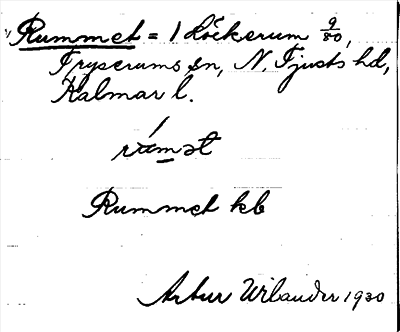 Rummet = 1 Löckerum 9/80,
Fryserums sn, N. Tjusts hd,
Kalmar l.
rumət
Rummet kb
Artur Wilander 1930